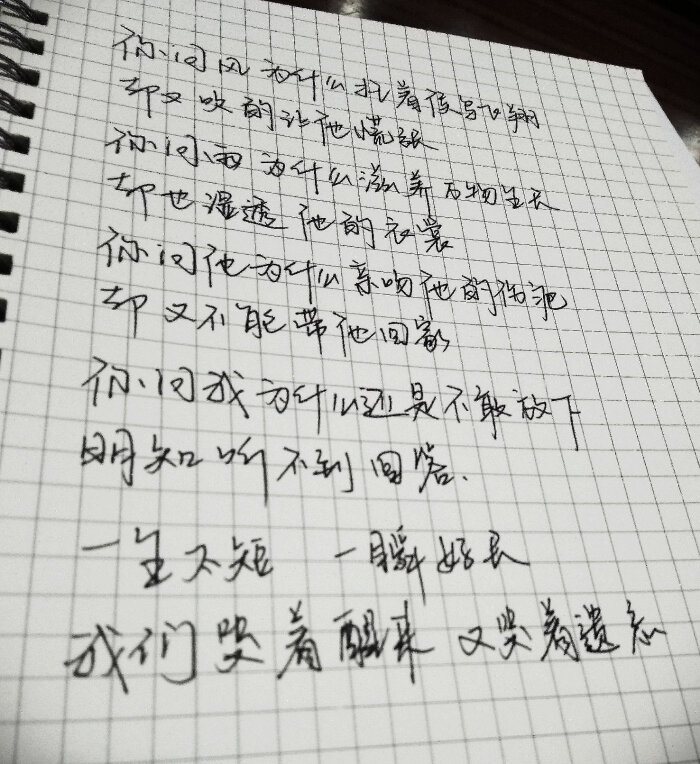 你问风为什么托着候鸟飞翔
却又吹的让他慌张
你问雨为什么滋养万物生长
却也湿透他的衣裳
你问他为什么亲吻他的伤疤
却又不能带他回家
你问我为什么还是不敢放下
明知听不到回答.
一生太短 一瞬好长
我们哭着醒来 又哭着遗忘